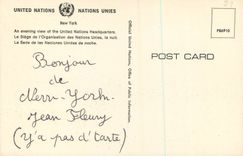 UNITED NATIONS NATIONS UNIES
New York
An evening view of the United Nations Headquarters.
Le Siège de l'Organisation des Nations Unies, la nuit
La Sede de las Naciones Unidas de noche.
Official United Nations Postcard, Office of Public Information
POST CARD
Bonjour
de
New-York
Jean Fleury
(Y'a pas d'Carte)